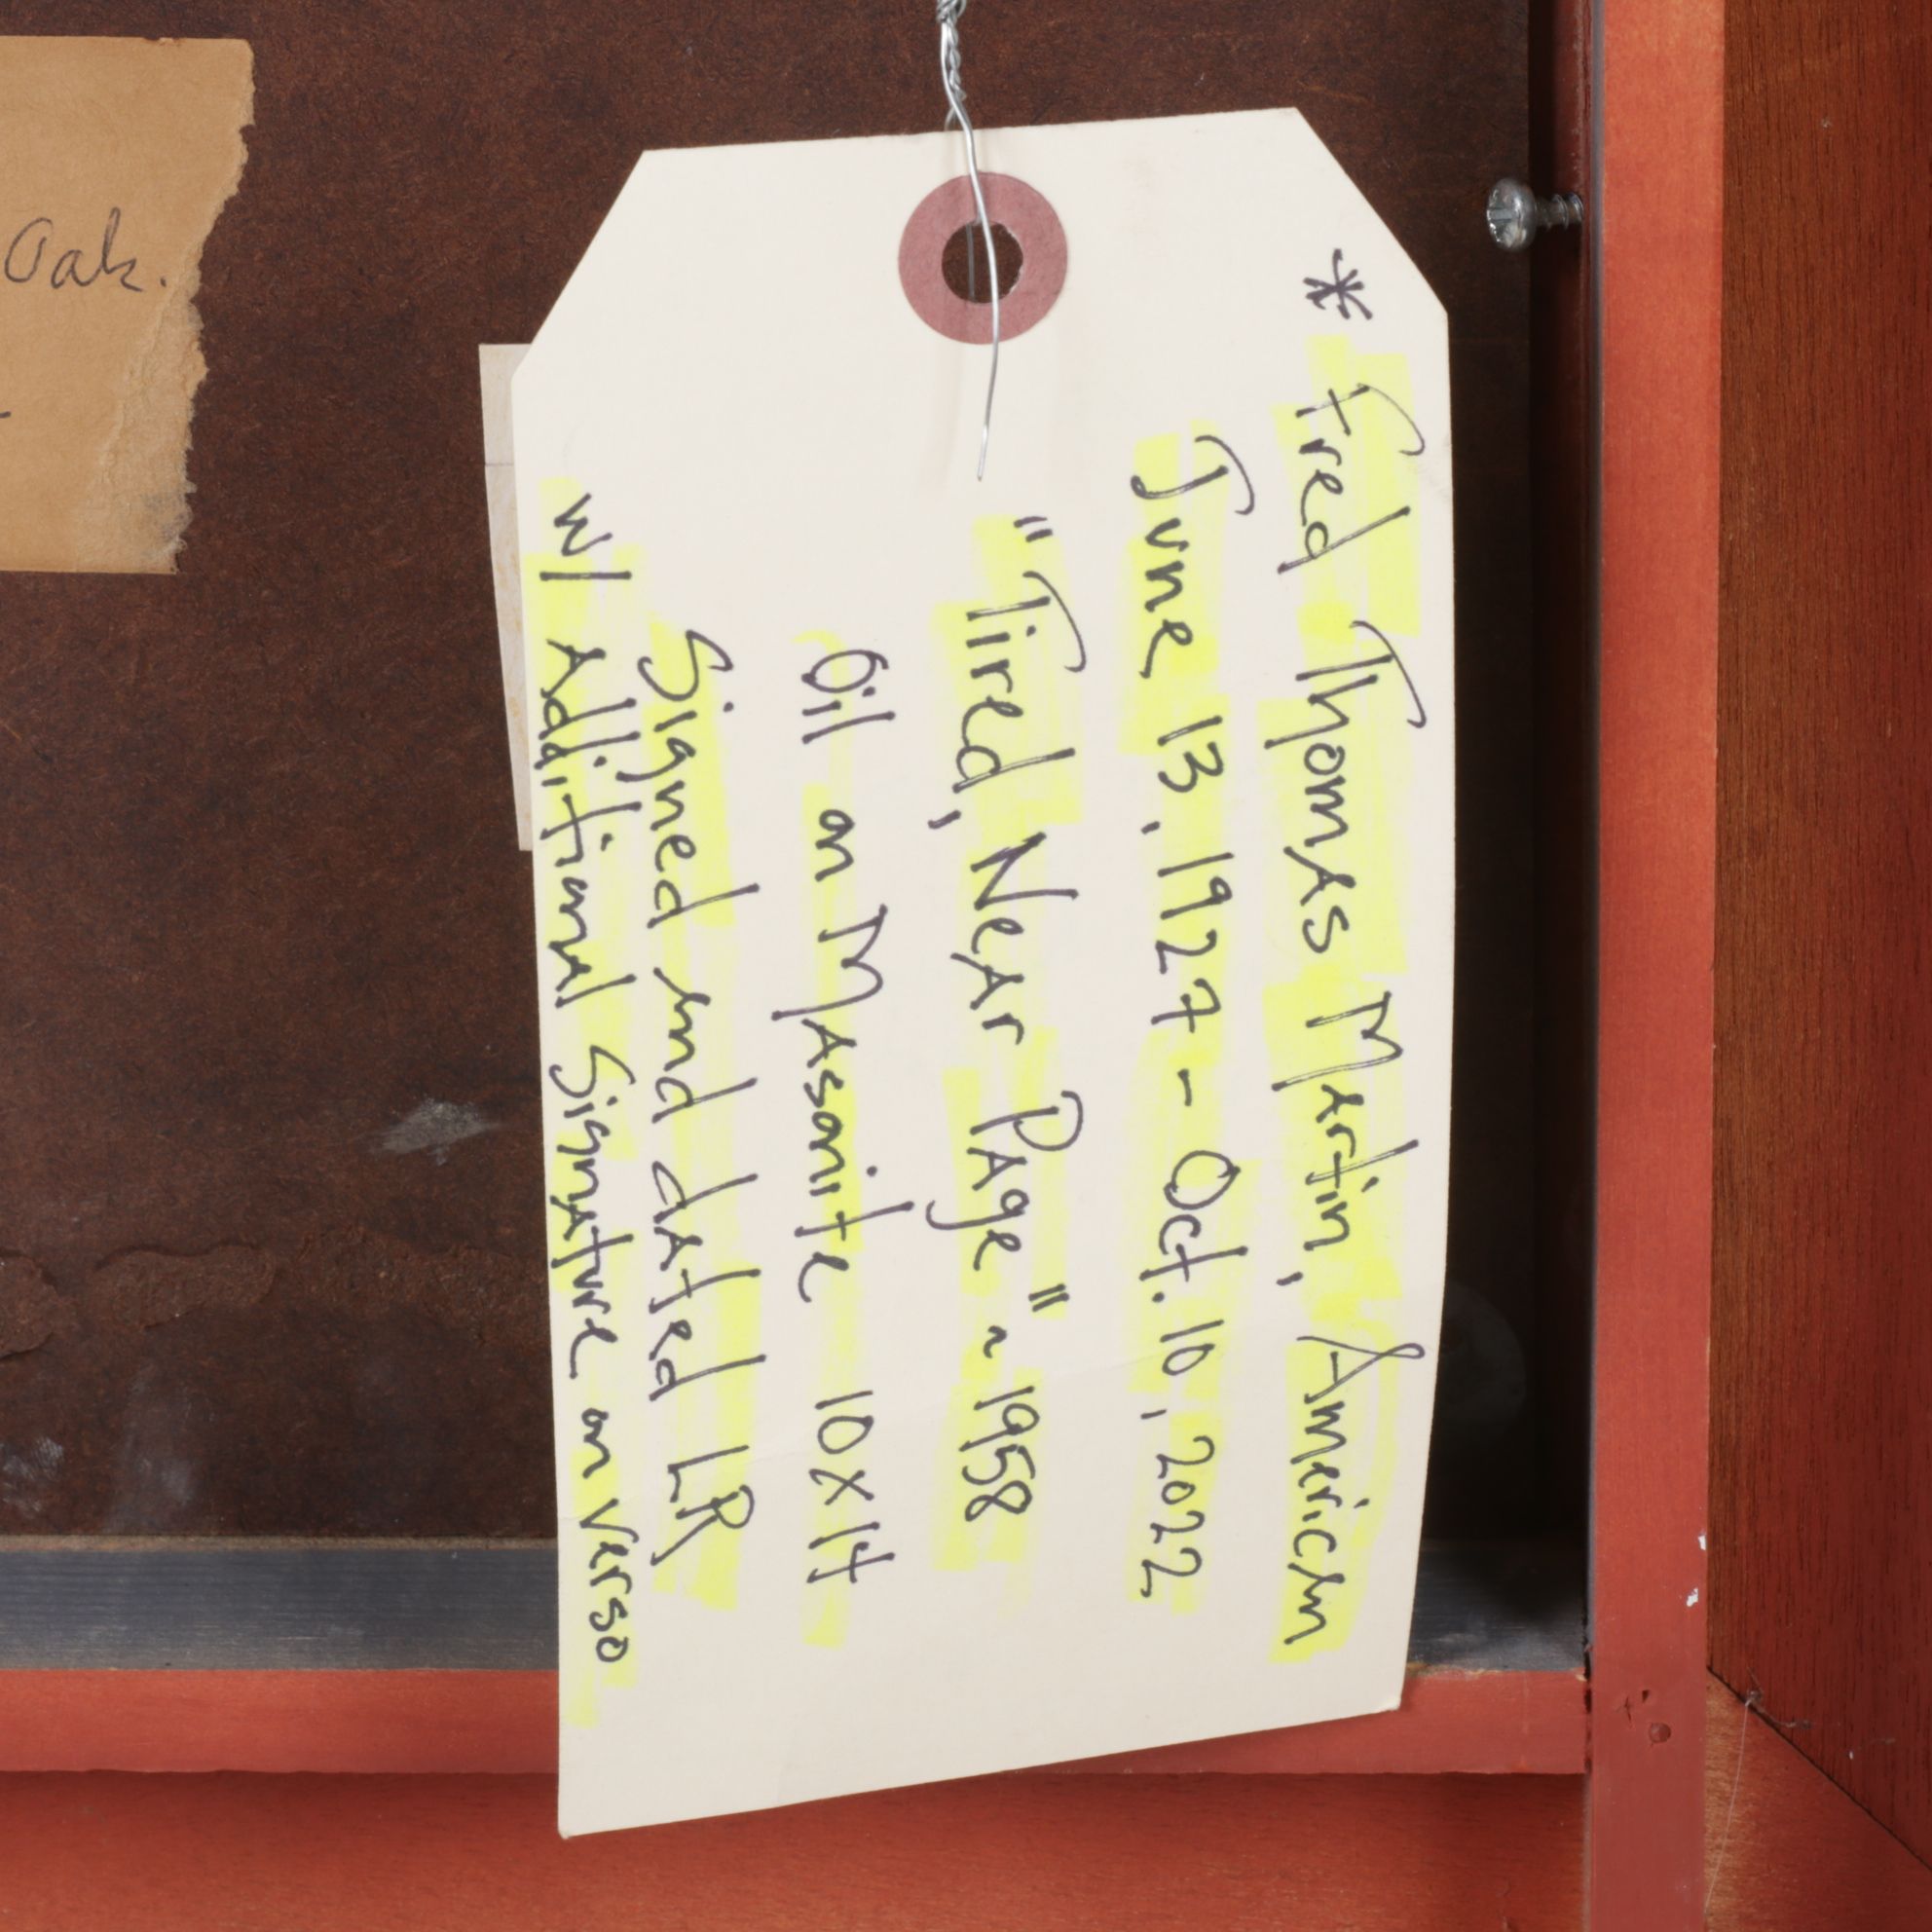 Oak.
* Fred Thomas Martin, American
June 13, 1927 - Oct. 10, 2022
"Tired, Near Page" ~ 1958
Oil on Masonite 10x14
Signed and dated LR
w/ Additional Signature on verso